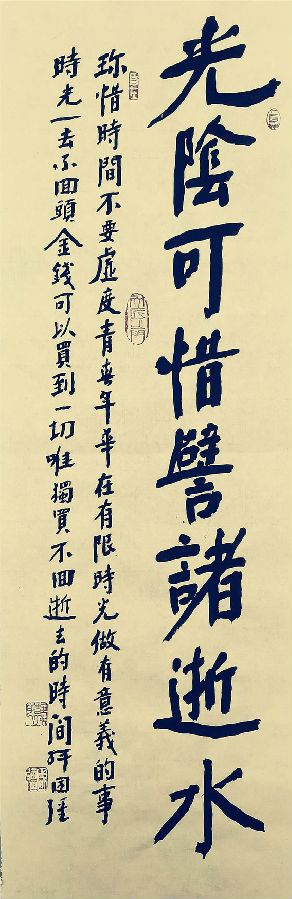 光陰可惜譬諸逝水
珎惜時間不要虛度青春年華在有限時光做有意義的事
時光一去不回頭金錢可以買到一切唯獨買不回逝去的時间